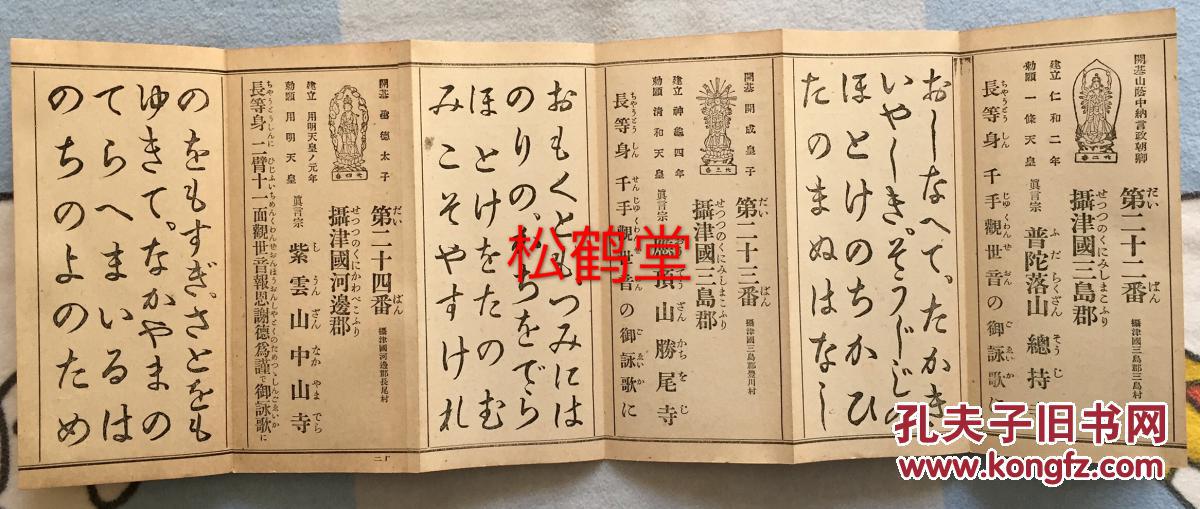 開基山蔭中納言政朝卿
建立 仁和二年
勅願 一條天皇
第二十二番
だい ばん
攝津國三島郡
せつつのくにみしまこふり
攝津國三島郡三島村
眞言宗 普陀落山 總持
ふだらくざん そうじ
長等身 千手觀世音の御詠歌に
ちやうとうしん せんじゆくわんせおん ごゑいか
おしなへて、たかき
いやしき、そうじじの
ほとけのちかひ
たのまぬはなし
開基 開成皇子
建立 神龜四年
勅願 清和天皇
第二十三番
だい ばん
攝津國三島郡
せつつのくにみしまこふり
攝津國三島郡豊川村
眞言宗 應頂山 勝尾寺
かちをじ
長等身 千手觀世音の御詠歌に
ちやうとうしん せんじゆくわんせおん ごゑいか
おもくとも、つみには
のりの、かちをでら
ほとけをたのむ
みこそやすけれ
開基 聖德太子
建立 用明天皇ノ元年
勅願 用明天皇
第二十四番
だい ばん
攝津國河邊郡
せつつのくにかわべこふり
攝津國河邊郡長尾村
眞言宗 紫雲山 中山寺
しうんざん なかやまでら
長等身 二臂十一面觀世音報恩謝德爲謹で御詠歌に
のをもすぎ、さとをも
ゆきて、なかやまの
てらへまいるは
のちのよのため
松鹤堂
孔夫子旧书网
www.kongfz.com